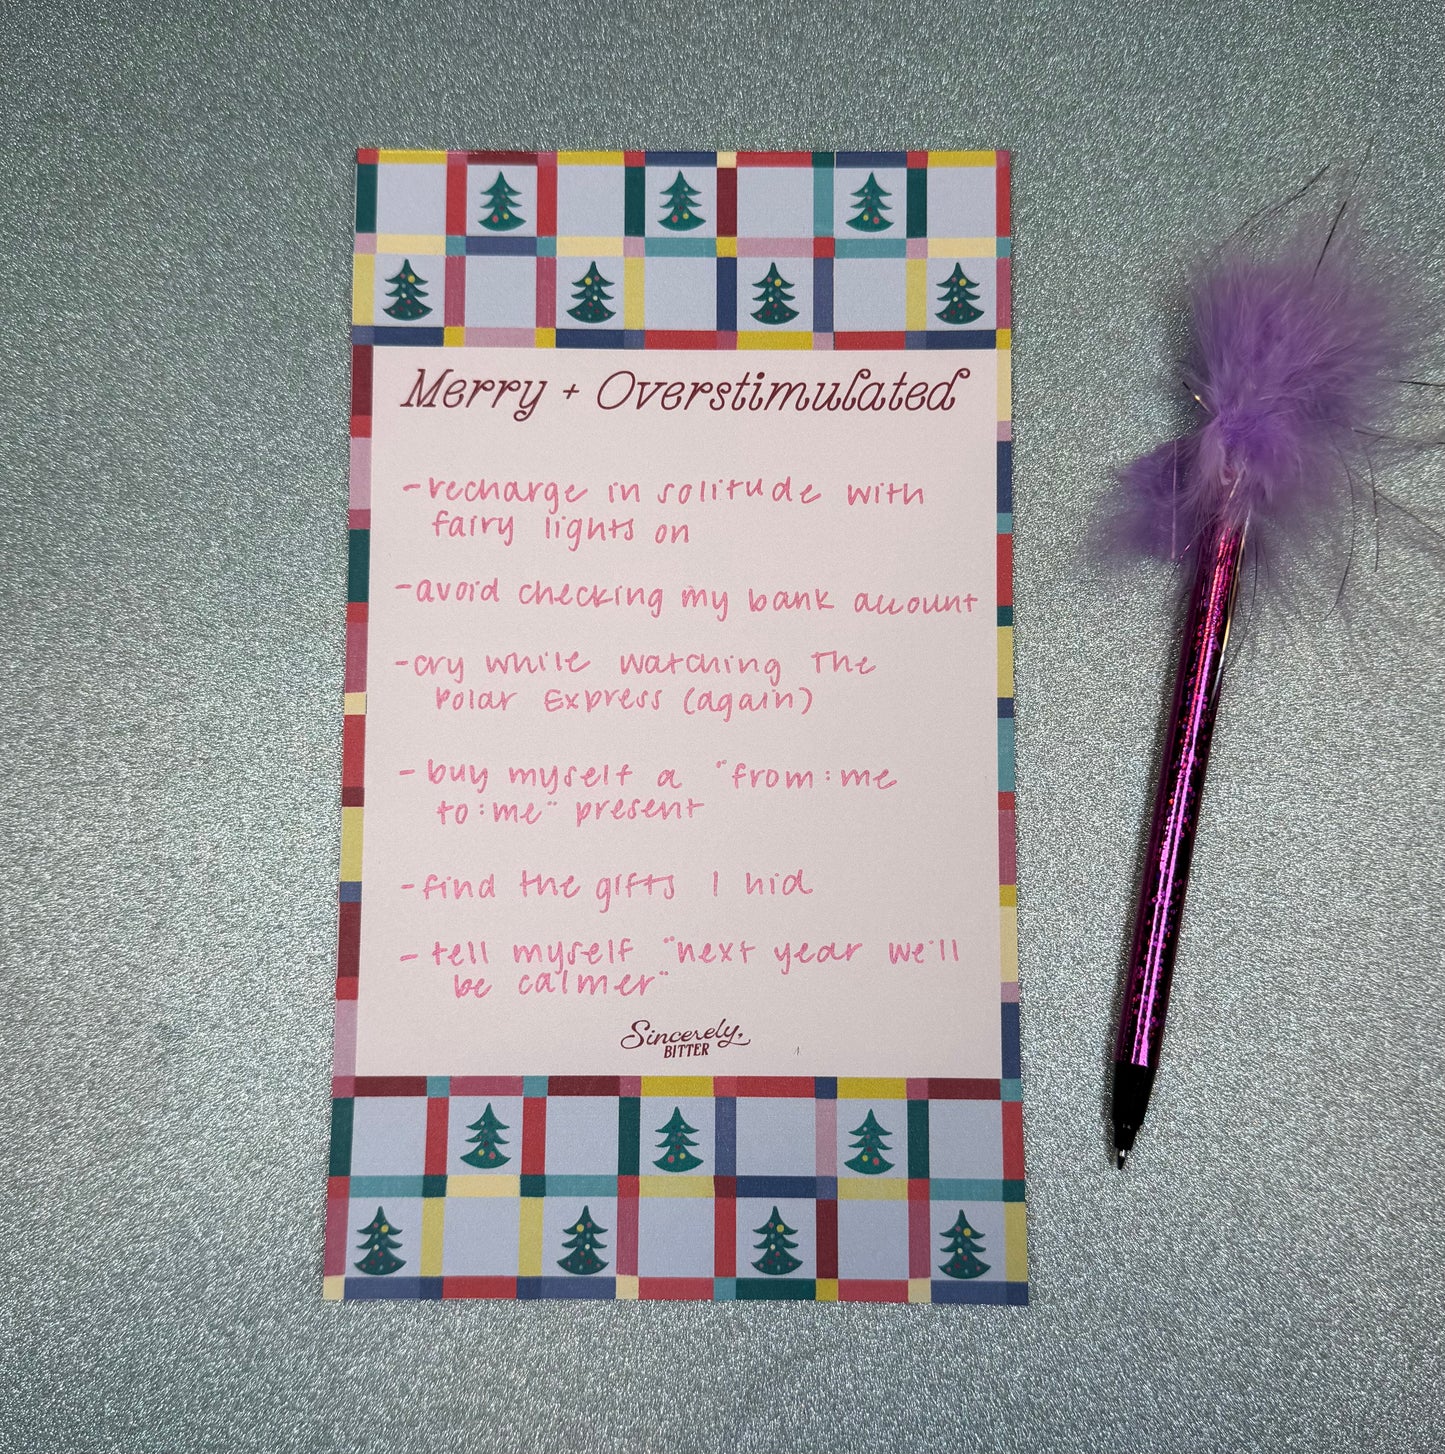 Merry + Overstimulated
-recharge in solitude with
fairy lights on
-avoid checking my bank account
-cry while watching The
Polar Express (again)
-buy myself a "from:me
to:me" present
-find the gifts I hid
-tell myself "next year we'll
be calmer"
Sincerely,
BITTER